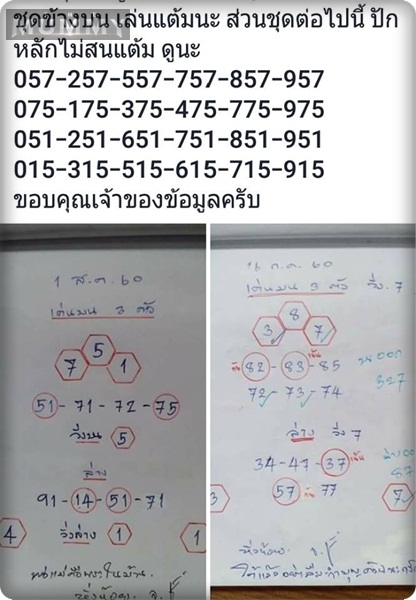 MUMMY
ชุดข้างบน เล่นแต้มนะ ส่วนชุดต่อไปนี้ ปัก
หลักไม่สนแต้ม ดูนะ
057-257-557-757-857-957
075-175-375-475-775-975
051-251-651-751-851-951
015-315-515-615-715-915
ขอบคุณเจ้าของข้อมูลครับ
1 ส.ค. 60
เด่นบน 3 ตัว
5
7 1
51-71-72-75
วิ่งบน 5
ล่าง
91-14-51-71
4 วิ่งล่าง 1 1
16 ก.ค. 60
เด่นบน 3 ตัว วิ่ง 7
8
3 7
82-83-85
72-73-74
327
ล่าง วิ่ง 7
34-47-37
57 77
87
3 7